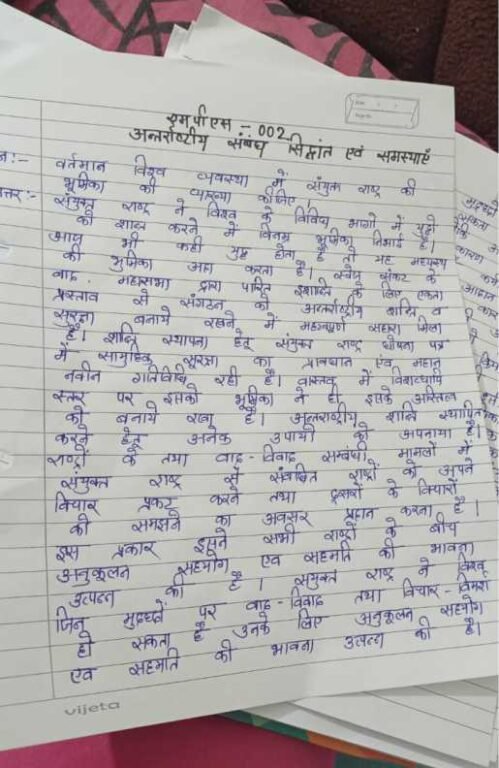 एम पी एस - 002
अन्तर्राष्ट्रीय संबंध सिद्धांत एवं समस्याएँ
न:- वर्तमान विश्व व्यवस्था में संयुक्त राष्ट्र की
भूमिका की व्याख्या कीजिए।
त्तर:- संयुक्त राष्ट्र ने विश्व के विविध भागों में युद्धों
को शान्त करने में विनम्र भूमिका निभाई है।
आज भी कहीं युद्ध होता है तो यह मध्यस्थ
की भूमिका अदा करता है। स्वेज संकट के
बाद महासभा द्वारा पारित शान्ति के लिए एकता
प्रस्ताव से संगठन को अन्तर्राष्ट्रीय शान्ति व
सुरक्षा बनाये रखने में महत्वपूर्ण सहारा मिला
है। शान्ति स्थापना हेतू संयुक्त राष्ट्र घोषणा पत्र
में सामुहिक सुरक्षा का प्रावधान एवं महान
नवीन गतिविधि रही है। वास्तव में विश्वव्यापि
स्तर पर इसकी भूमिका ने ही इसके अस्तित्व
को बनाये रखा है। अन्तराष्ट्रीय शान्ति स्थापित
करने हेतू अनेक उपायों को अपनाया है।
राष्ट्रों के तथा वाद-विवाद सम्बंधी मामलों में
संयुक्त राष्ट्र से संबंधित राष्ट्रों को अपने
विचार प्रकट करने तथा दूसरों के विचारों
को समझने का अवसर प्रदान करना है।
इस प्रकार इसने सभी राष्ट्रों के बीच
अनुकूलन सहयोग एवं सहमति की भावना
उत्पन्न की है। संयुक्त राष्ट्र ने विश्व
जिन मुद्दों पर वाद-विवाद तथा विचार-विमर्श
हो सकता है उनके लिए अनुकूलन सहयोग
एवं सहमति की भावना उत्पन्न की है।
vijeta